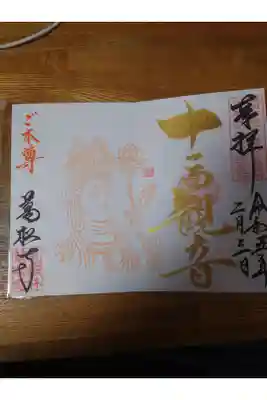 奉拝
令和五年
二月三日
十一面觀音
ご本尊
萬松寺